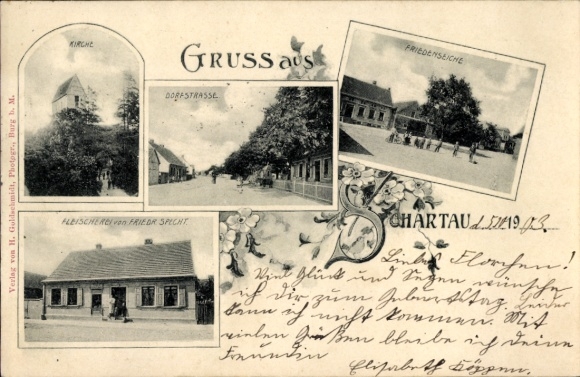 KIRCHE
GRUSS aus
FRIEDENSEICHE
DORFSTRASSE
FLEISCHEREI von FRIEDR. SPECHT.
SCHARTAU d. 19 03.
Liebes Florchen!
Viel Glück und Segen wünsche
ich dir zum Geburtstag, leider
kann ich nicht kommen. Mit
vielen Grüßen bleibe ich deine
Freundin
Elisabeth Köppen.
Verlag von H. Goldschmidt, Photogr., Burg b. M.